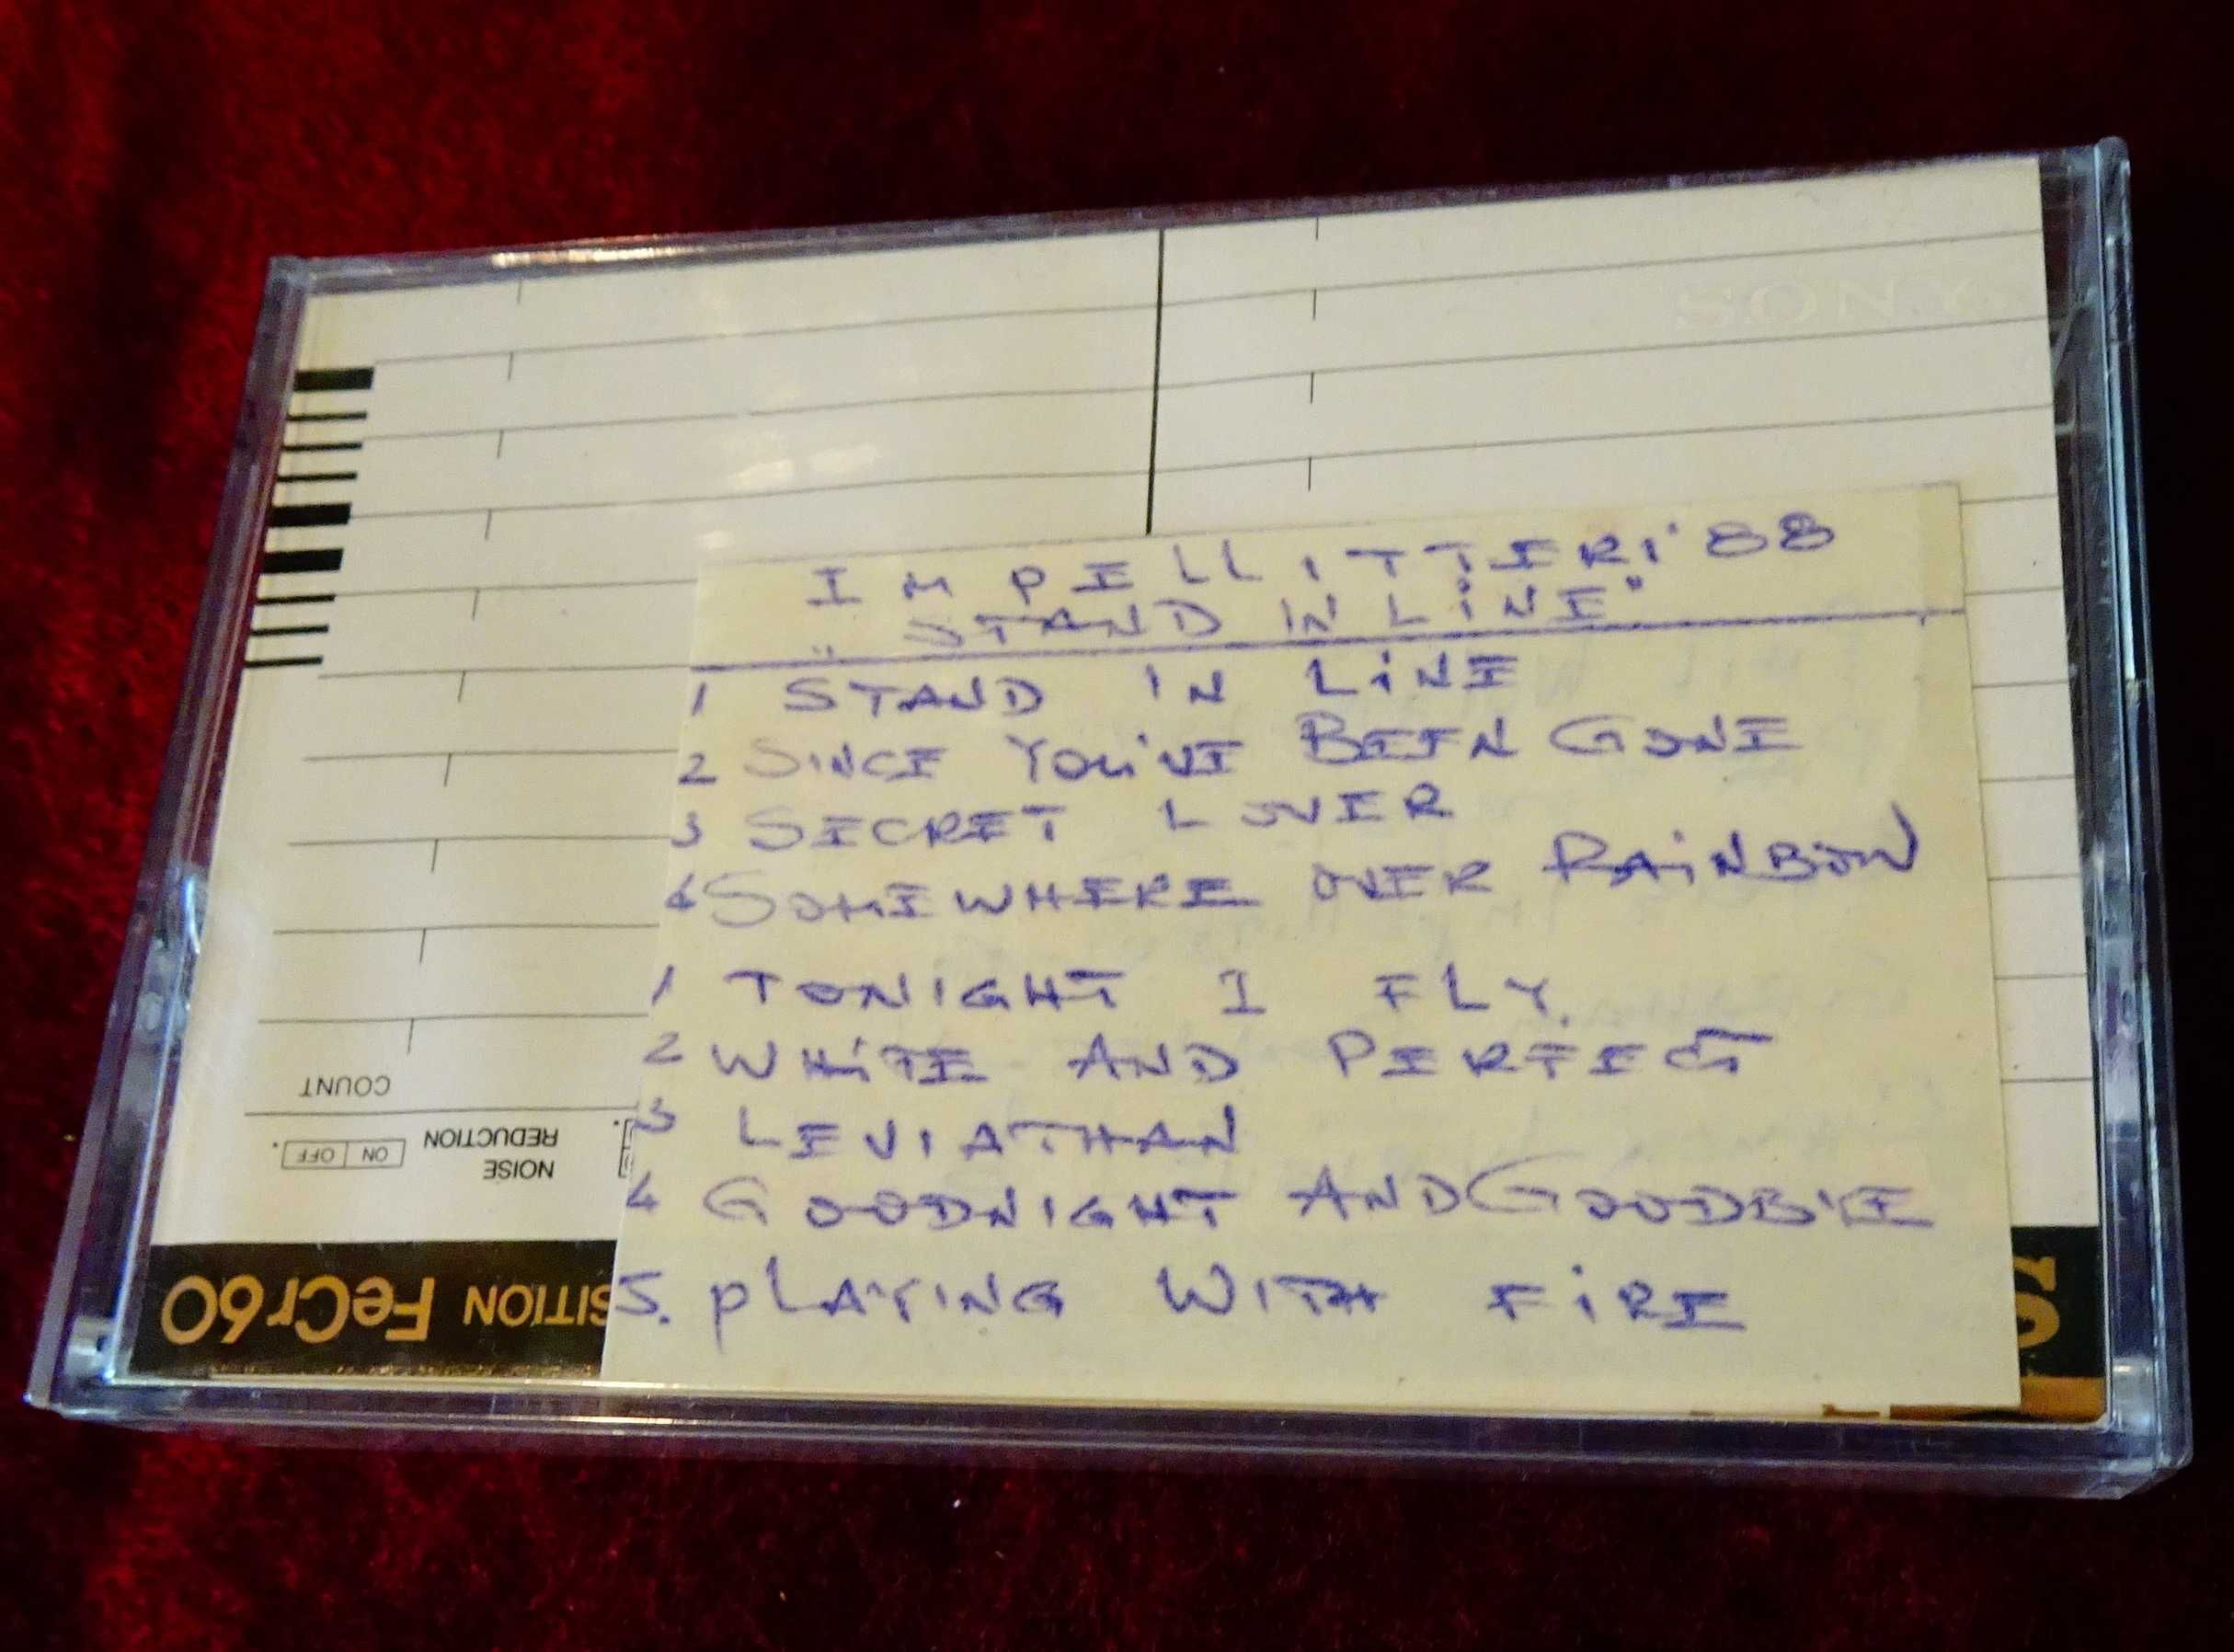 SONY
IMPELLITTERI '88
„STAND IN LINE"
1 STAND IN LINE
2 SINCE YOU'VE BEEN GONE
3 SECRET LOVER
4 SOMEWHERE OVER RAINBOW
1 TONIGHT I FLY.
2 WHITE AND PERFECT
3 LEVIATHAN
4 GOODNIGHT AND GOODBYE
5. PLAYING WITH FIRE
COUNT
NOISE REDUCTION
ON OFF
SITION FeCr60